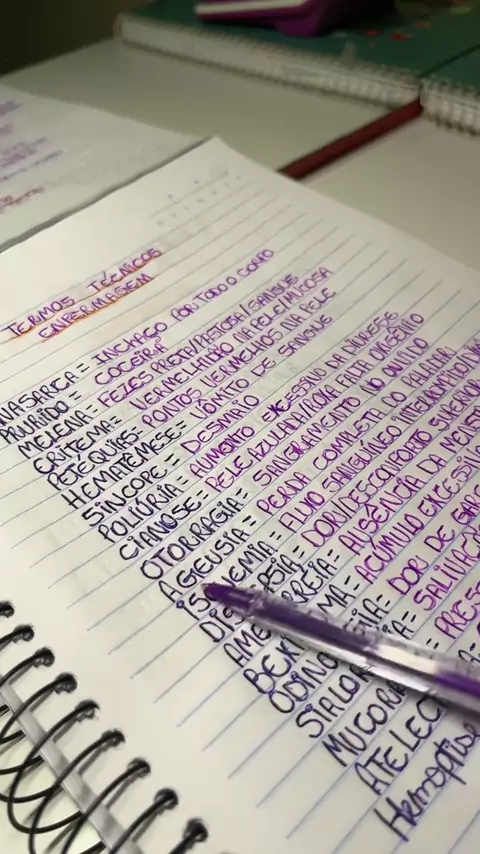 TERMOS TÉCNICOS
ENFERMAGEM
NASARCA = INCHAÇO POR TODO O CORPO
PRURIDO = COCEIRA
MELENA = FEZES PRETA/PASTOSA/SANGUE
ERITEMA = VERMELHIDÃO NA PELE/MUCOSA
PETÉQUIAS = PONTOS VERMELHOS NA PELE
HEMATÊMESE = VÔMITO DE SANGUE
SÍNCOPE = DESMAIO
POLIÚRIA = AUMENTO EXCESSIVO DA DIURESE
CIANOSE = PELE AZULADA/ROXA FALTA OXIGÊNIO
OTORRAGIA = SANGRAMENTO NO OUVIDO
AGEUSIA = PERDA COMPLETA DO PALADAR
ISQUEMIA = FLUXO SANGUÍNEO INTERROMPIDO
DIS PSIA = DOR/DESCONFORTO SUPERIOR
AME RREIA = AUSÊNCIA DA MENST
MA = ACÚMULO EXCESSIV
ODINO GIA = DOR DE GAR
SIALOR IA = SALIVAÇÃ
MUCORR = PRES
ATELEC
Hemoptise